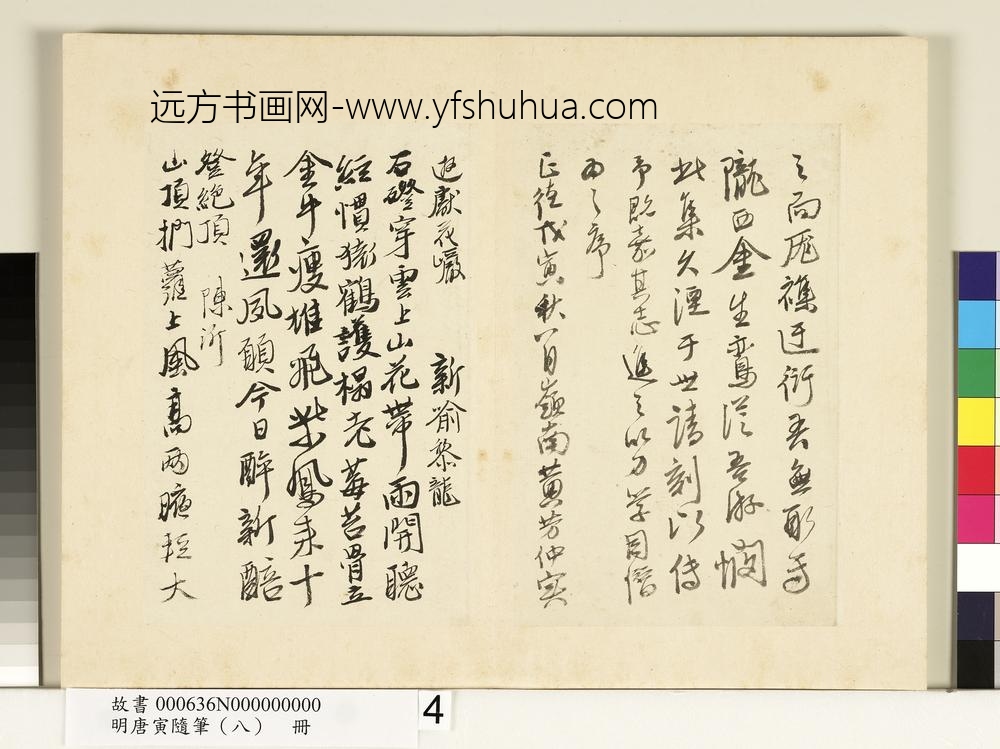 远方书画网-www.yfshuhua.com
隴西金生鸞從吾游憫
此集久湮于世請刻以傳
予既嘉其志進之以力學因僭
為之序
正德戊寅秋八月嶺南黃芳仲實
遊獻花巖 新喻黎龍
石磴穿雲上山花帶雨開聽
經慣猿鶴護榻老莓苔骨立
金牛瘦雄飛紫鳳來十
年還夙願今日醉新醅
登絕頂 陳沂
山頂捫蘿上風高兩腋輕大
故書 000636N000000000
明唐寅隨筆（八） 冊
4